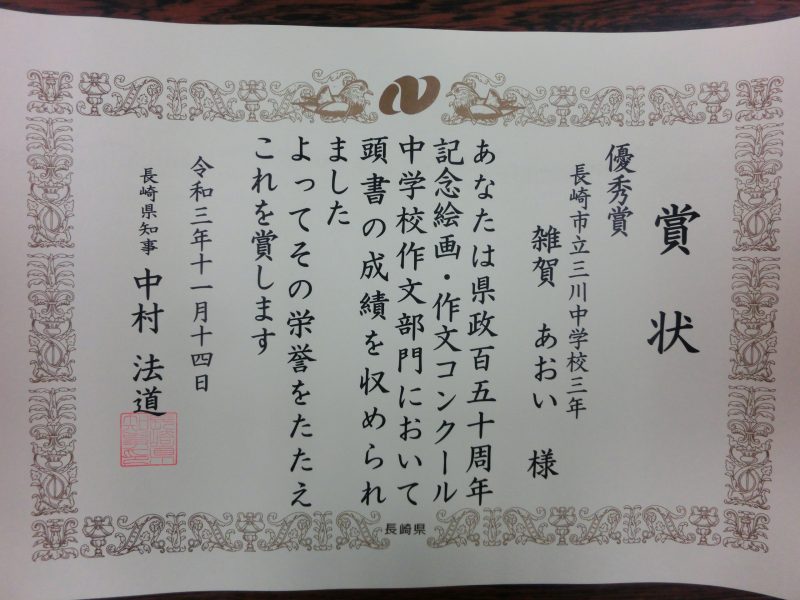 賞状
優秀賞
長崎市立三川中学校三年
雑賀 あおい 様
あなたは県政百五十周年
記念絵画・作文コンクール
中学校作文部門において
頭書の成績を収められ
ました
よってその栄誉をたたえ
これを賞します
令和三年十一月十四日
長崎県知事 中村 法道
長崎県